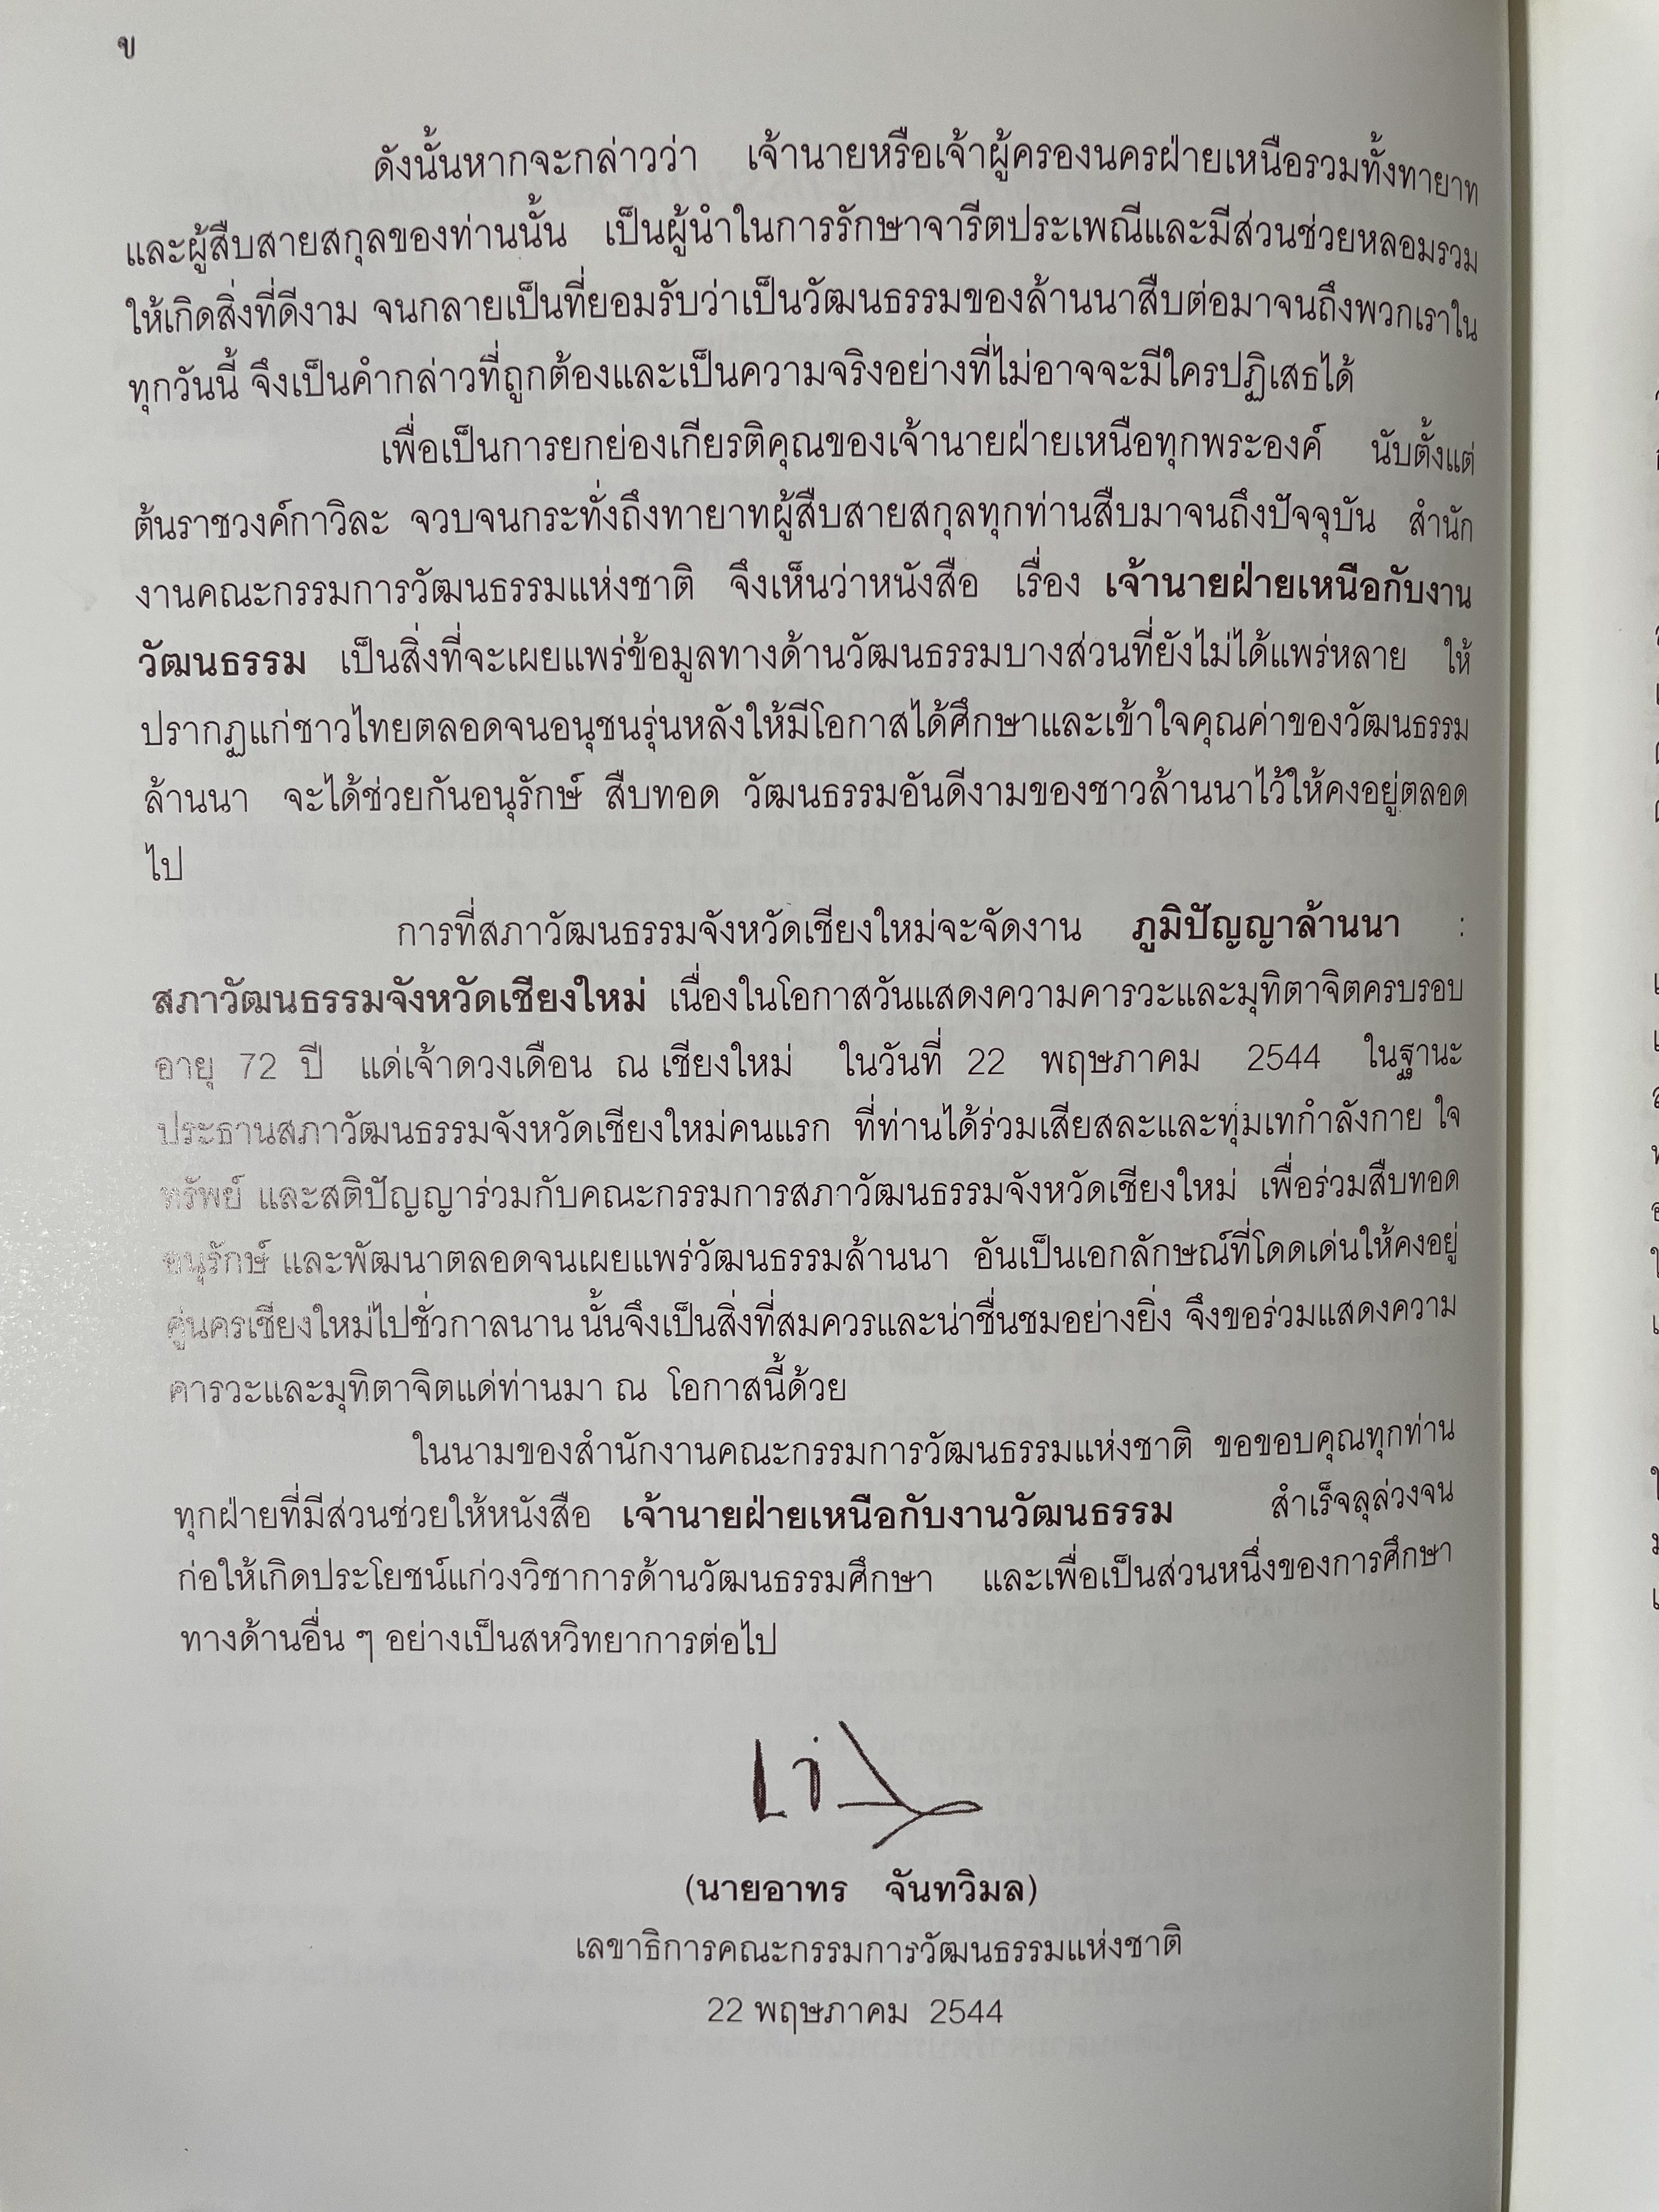 ข
ดังนั้นหากจะกล่าวว่า เจ้านายหรือเจ้าผู้ครองนครฝ่ายเหนือรวมทั้งทายาท
และผู้สืบสายสกุลของท่านนั้น เป็นผู้นำในการรักษาจารีตประเพณีและมีส่วนช่วยหลอมรวม
ให้เกิดสิ่งที่ดีงาม จนกลายเป็นที่ยอมรับว่าเป็นวัฒนธรรมของล้านนาสืบต่อมาจนถึงพวกเราใน
ทุกวันนี้ จึงเป็นคำกล่าวที่ถูกต้องและเป็นความจริงอย่างที่ไม่อาจจะมีใครปฏิเสธได้
เพื่อเป็นการยกย่องเกียรติคุณของเจ้านายฝ่ายเหนือทุกพระองค์ นับตั้งแต่
ต้นราชวงค์กาวิละ จวบจนกระทั่งถึงทายาทผู้สืบสายสกุลทุกท่านสืบมาจนถึงปัจจุบัน สำนัก
งานคณะกรรมการวัฒนธรรมแห่งชาติ จึงเห็นว่าหนังสือ เรื่อง เจ้านายฝ่ายเหนือกับงาน
วัฒนธรรม เป็นสิ่งที่จะเผยแพร่ข้อมูลทางด้านวัฒนธรรมบางส่วนที่ยังไม่ได้แพร่หลาย ให้
ปรากฏแก่ชาวไทยตลอดจนอนุชนรุ่นหลังให้มีโอกาสได้ศึกษาและเข้าใจคุณค่าของวัฒนธรรม
ล้านนา จะได้ช่วยกันอนุรักษ์ สืบทอด วัฒนธรรมอันดีงามของชาวล้านนาไว้ให้คงอยู่ตลอด
ไป
การที่สภาวัฒนธรรมจังหวัดเชียงใหม่จะจัดงาน ภูมิปัญญาล้านนา :
สภาวัฒนธรรมจังหวัดเชียงใหม่ เนื่องในโอกาสวันแสดงความคารวะและมุทิตาจิตครบรอบ
อายุ 72 ปี แด่เจ้าดวงเดือน ณ เชียงใหม่ ในวันที่ 22 พฤษภาคม 2544 ในฐานะ
ประธานสภาวัฒนธรรมจังหวัดเชียงใหม่คนแรก ที่ท่านได้ร่วมเสียสละและทุ่มเทกำลังกาย ใจ
ทรัพย์ และสติปัญญาร่วมกับคณะกรรมการสภาวัฒนธรรมจังหวัดเชียงใหม่ เพื่อร่วมสืบทอด
อนุรักษ์ และพัฒนาตลอดจนเผยแพร่วัฒนธรรมล้านนา อันเป็นเอกลักษณ์ที่โดดเด่นให้คงอยู่
คู่นครเชียงใหม่ไปชั่วกาลนาน นั้นจึงเป็นสิ่งที่สมควรและน่าชื่นชมอย่างยิ่ง จึงขอร่วมแสดงความ
คารวะและมุทิตาจิตแด่ท่านมา ณ โอกาสนี้ด้วย
ในนามของสำนักงานคณะกรรมการวัฒนธรรมแห่งชาติ ขอขอบคุณทุกท่าน
ทุกฝ่ายที่มีส่วนช่วยให้หนังสือ เจ้านายฝ่ายเหนือกับงานวัฒนธรรม สำเร็จลุล่วงจน
ก่อให้เกิดประโยชน์แก่วงวิชาการด้านวัฒนธรรมศึกษา และเพื่อเป็นส่วนหนึ่งของการศึกษา
ทางด้านอื่น ๆ อย่างเป็นสหวิทยาการต่อไป
(นายอาทร จันทวิมล)
เลขาธิการคณะกรรมการวัฒนธรรมแห่งชาติ
22 พฤษภาคม 2544